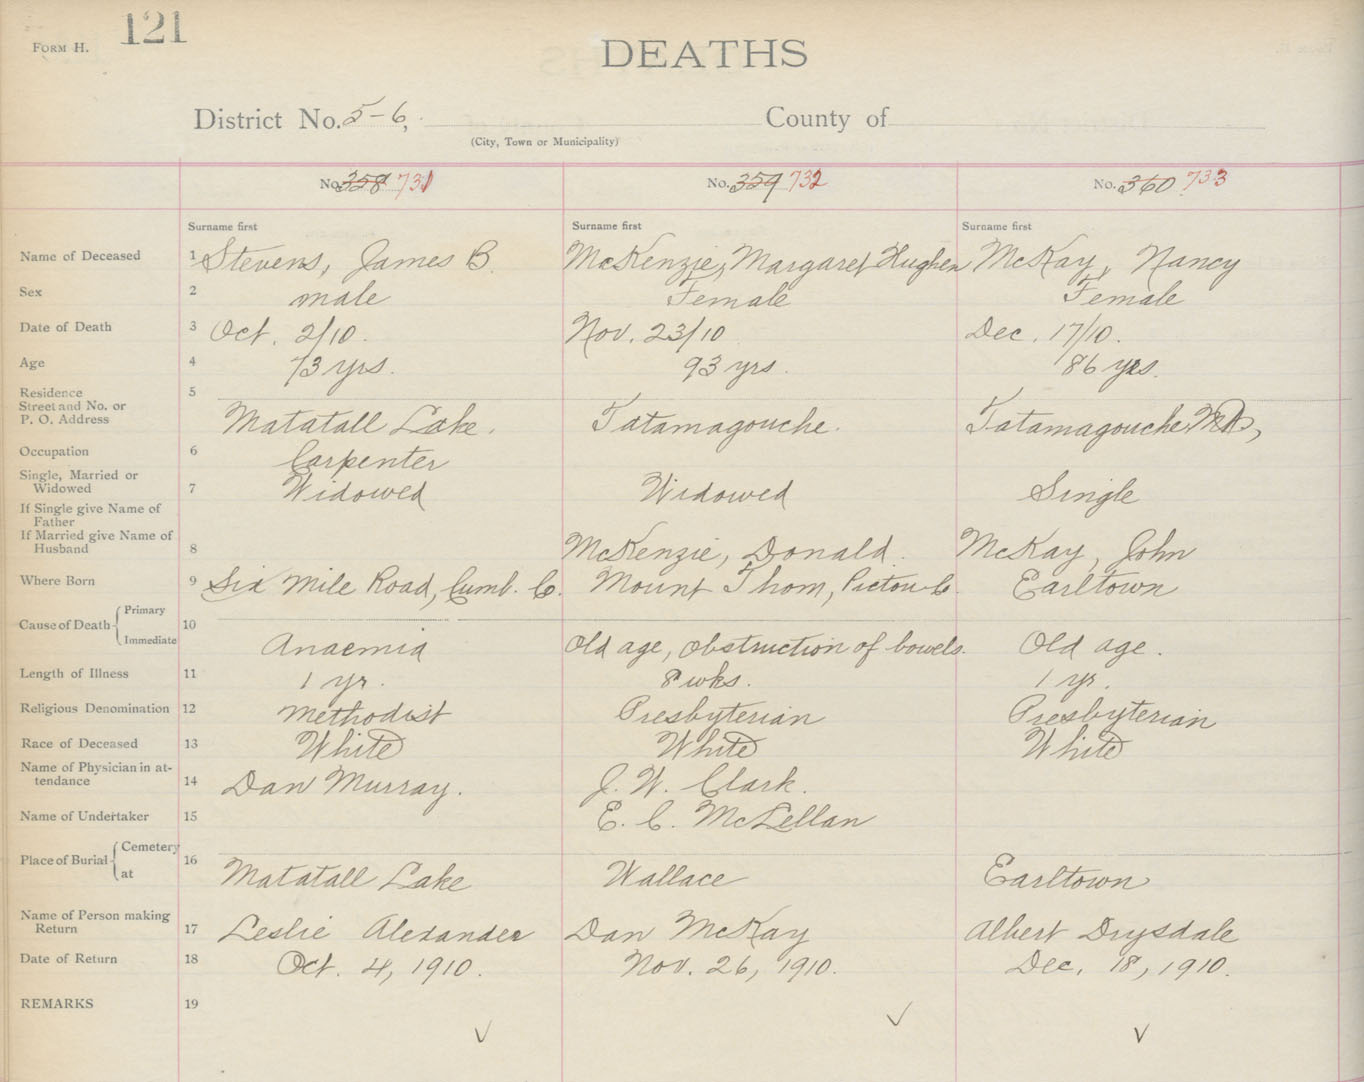 FORM H.
121
DEATHS
District No. 5-6, County of
(City, Town or Municipality)
No. 358 731 No. 359 732 No. 360 733
Surname first Surname first Surname first
Name of Deceased 1 Stevens, James B. McKenzie, Margaret Hughen McKay, Nancy
Sex 2 male Female Female
Date of Death 3 Oct. 2/10. Nov. 23/10 Dec. 17/10.
Age 4 73 yrs. 93 yrs. 86 yrs.
Residence 5
Street and No. or
P. O. Address Matatall Lake. Tatamagouche. Tatamagouche
Occupation 6 Carpenter
Single, Married or
Widowed 7 Widowed Widowed Single
If Single give Name of
Father
If Married give Name of
Husband 8 McKenzie, Donald. McKay, John
Where Born 9 Six Mile Road, Cumb. Co. Mount Thom, Pictou Co. Earltown
Cause of Death { Primary 10
Immediate Anaemia Old age, obstruction of bowels. Old age.
Length of Illness 11 1 yr. 8 wks. 1 yr.
Religious Denomination 12 Methodist Presbyterian Presbyterian
Race of Deceased 13 White White White
Name of Physician in at-
tendance 14 Dan Murray. J. W. Clark.
Name of Undertaker 15 E. C. McLellan
Place of Burial { Cemetery 16
at Matatall Lake Wallace Earltown
Name of Person making
Return 17 Leslie Alexander Dan McKay Albert Drysdale
Date of Return 18 Oct. 4, 1910. Nov. 26, 1910. Dec. 18, 1910.
REMARKS 19